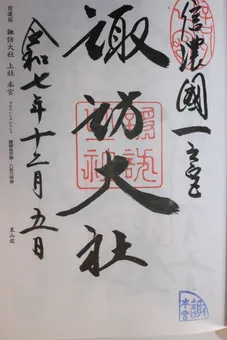 信濃國一之宮
諏訪大社
令和七年十二月五日
信濃国 諏訪大社 上社 本宮
東山道
本宮